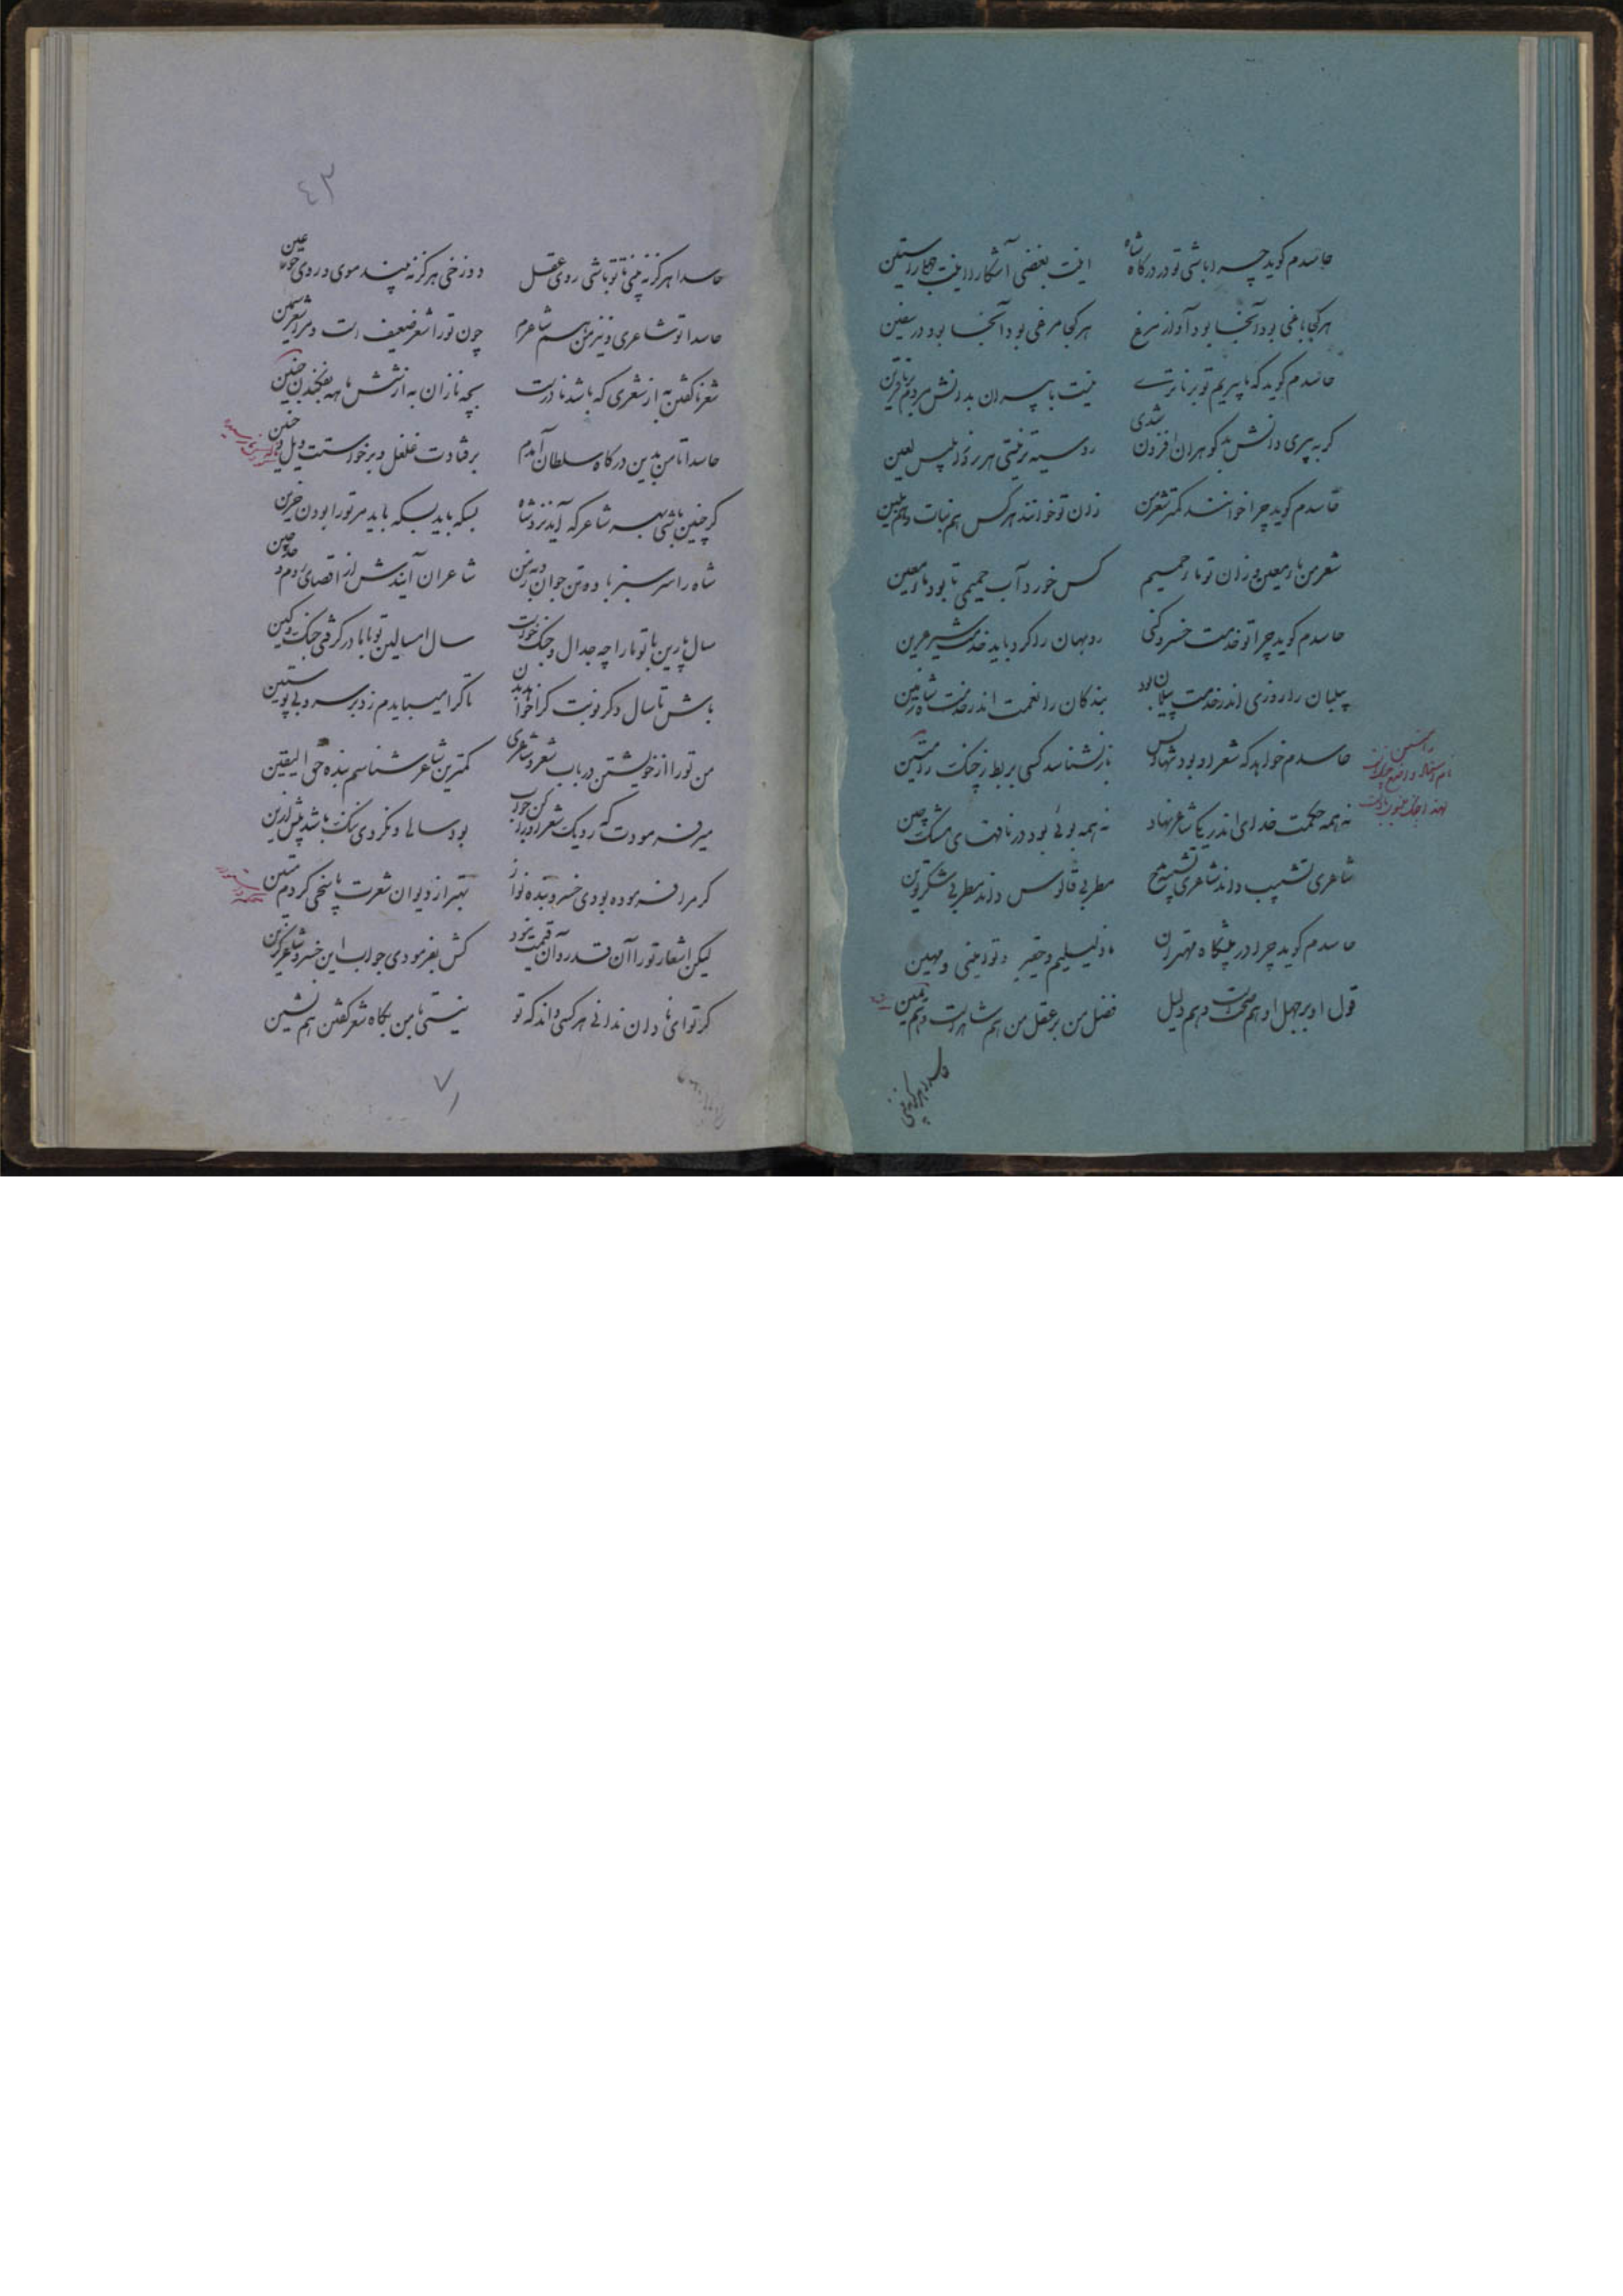 حاسدم کوید چرا باشی تو در درکاه شاه
اینت بغضی آشکارا اینت جهلی راستین
هر کجا باغی بود آنجا بود آواز مرغ
هر کجا مرغی بود آنجا بود در سفین
حاسدم کوید که ما پیریم و تو برناتری
نیست با پیران بدانش مردم برنا قرین
کر به پیری دانش بد کوهران افزون شدی
روسیه تر نیستی هر روز ابلیس لعین
حاسدم کوید چرا خوانند کمتر شعر من
زان تو خوانند هرکس هم بنات و هم بنین
شعر من ماء معین و زان تو ماء حمیم
کس خورد آب حمیمی تا بود ماء معین
حاسدم کوید چرا تو خدمت خسرو کنی
روبهان را کرد باید خدمت شیر عرین
پیلبان را روزی اندر خدمت پیلان بود
بندکان را نعمت اندر خدمت شاه زمین
حاسدم خواهد که شعر او بود تنها و بس
باز نشناسد کسی بربط ز چنک رامتین
نه همه حکمت خدای اندر یکی شاعر نهاد
نه همه بوئی بود در نافهای مشک چین
شاعری تشبیب داند شاعری تشبیه و مدح
مطربی قالوس داند مطربی شکر توین
حاسدم کوید چرا در پیشکاه مهتران
ما ذلیلیم و حقیر و تو امینی و مهین
قول او بر جهل او هم حجت است و هم دلیل
فضل من بر عقل من هم شاهد است و هم یمین
حاسدا هرکز نه بینی
٤٣
حاسدا هرکز نه بینی تا تو باشی روی عقل
دوزخی هرکز نه بیند موی و روی حور عین
حاسدا تو شاعری و نیز من هم شاعرم
چون تو را شعر ضعیف است و مرا شعر سمین
شعر ناکفتن به از شعری که باشد نادرست
بچه نازادن به از ششماهه بفکندن جنین
حاسدا تا من بدین درکاه سلطان آمدم
برفتادت غلغل و برخواستت ویل و حنین
کر چنین باشی بهر شاعر که آید نزد شاه
بسکه باید بسکه باید مر تو را بودن حزین
شاه را سر سبز باد و تن جوان
شاعران آیندش از اقصای روم و حد چین
سال پارین با تو ما را چه جدال و جنک خواست
سال امسالین تو با ما در کرفتی جنک و کین
باش تا سال دکر نوبت کرا خواهد بدن
تا کرا میبایدم زد بر سر و بی پوستین
من تو را از خویشتن در باب شعر و شاعری
کمترین شاعر شناسم بنده حق الیقین
میر فرمودت که رو یک شعر او را کن جواب
بود سالی و نکردی ننک باشد پیش ازین
کر مرا فرموده بودی خسرو بنده نواز
بهتر از دیوان شعرت پاسخی کردم متین
لیکن اشعار تو را آن قدر و آن قیمت نبود
کش بفرمودی جواب این خسرو شاعر کزین
کر تو ای نادان ندانی هرکسی داند که تو
نیستی با من بکاه شعر کفتن هم نشین
۷۱